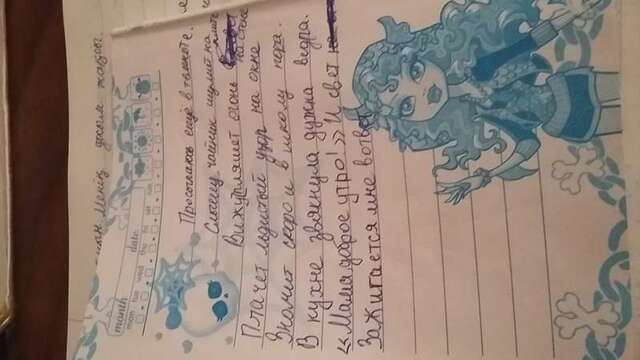 month
date
mon tue wed thu fri sat sun
Просыпаюсь ещё в темноте.
Слышу: чайник шумит на
Вижу: пляшет огонь на стене
Плачет льдистый узор на окне
Значит скоро и в школу пора.
В кухне звякнула дужка ведра.
«Мама, доброе утро!» И свет
Зажигается мне в ответ